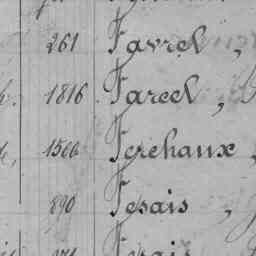 261 Favrel,
1816 Farcel,
1566 Ferehaux,
890 Fesais,